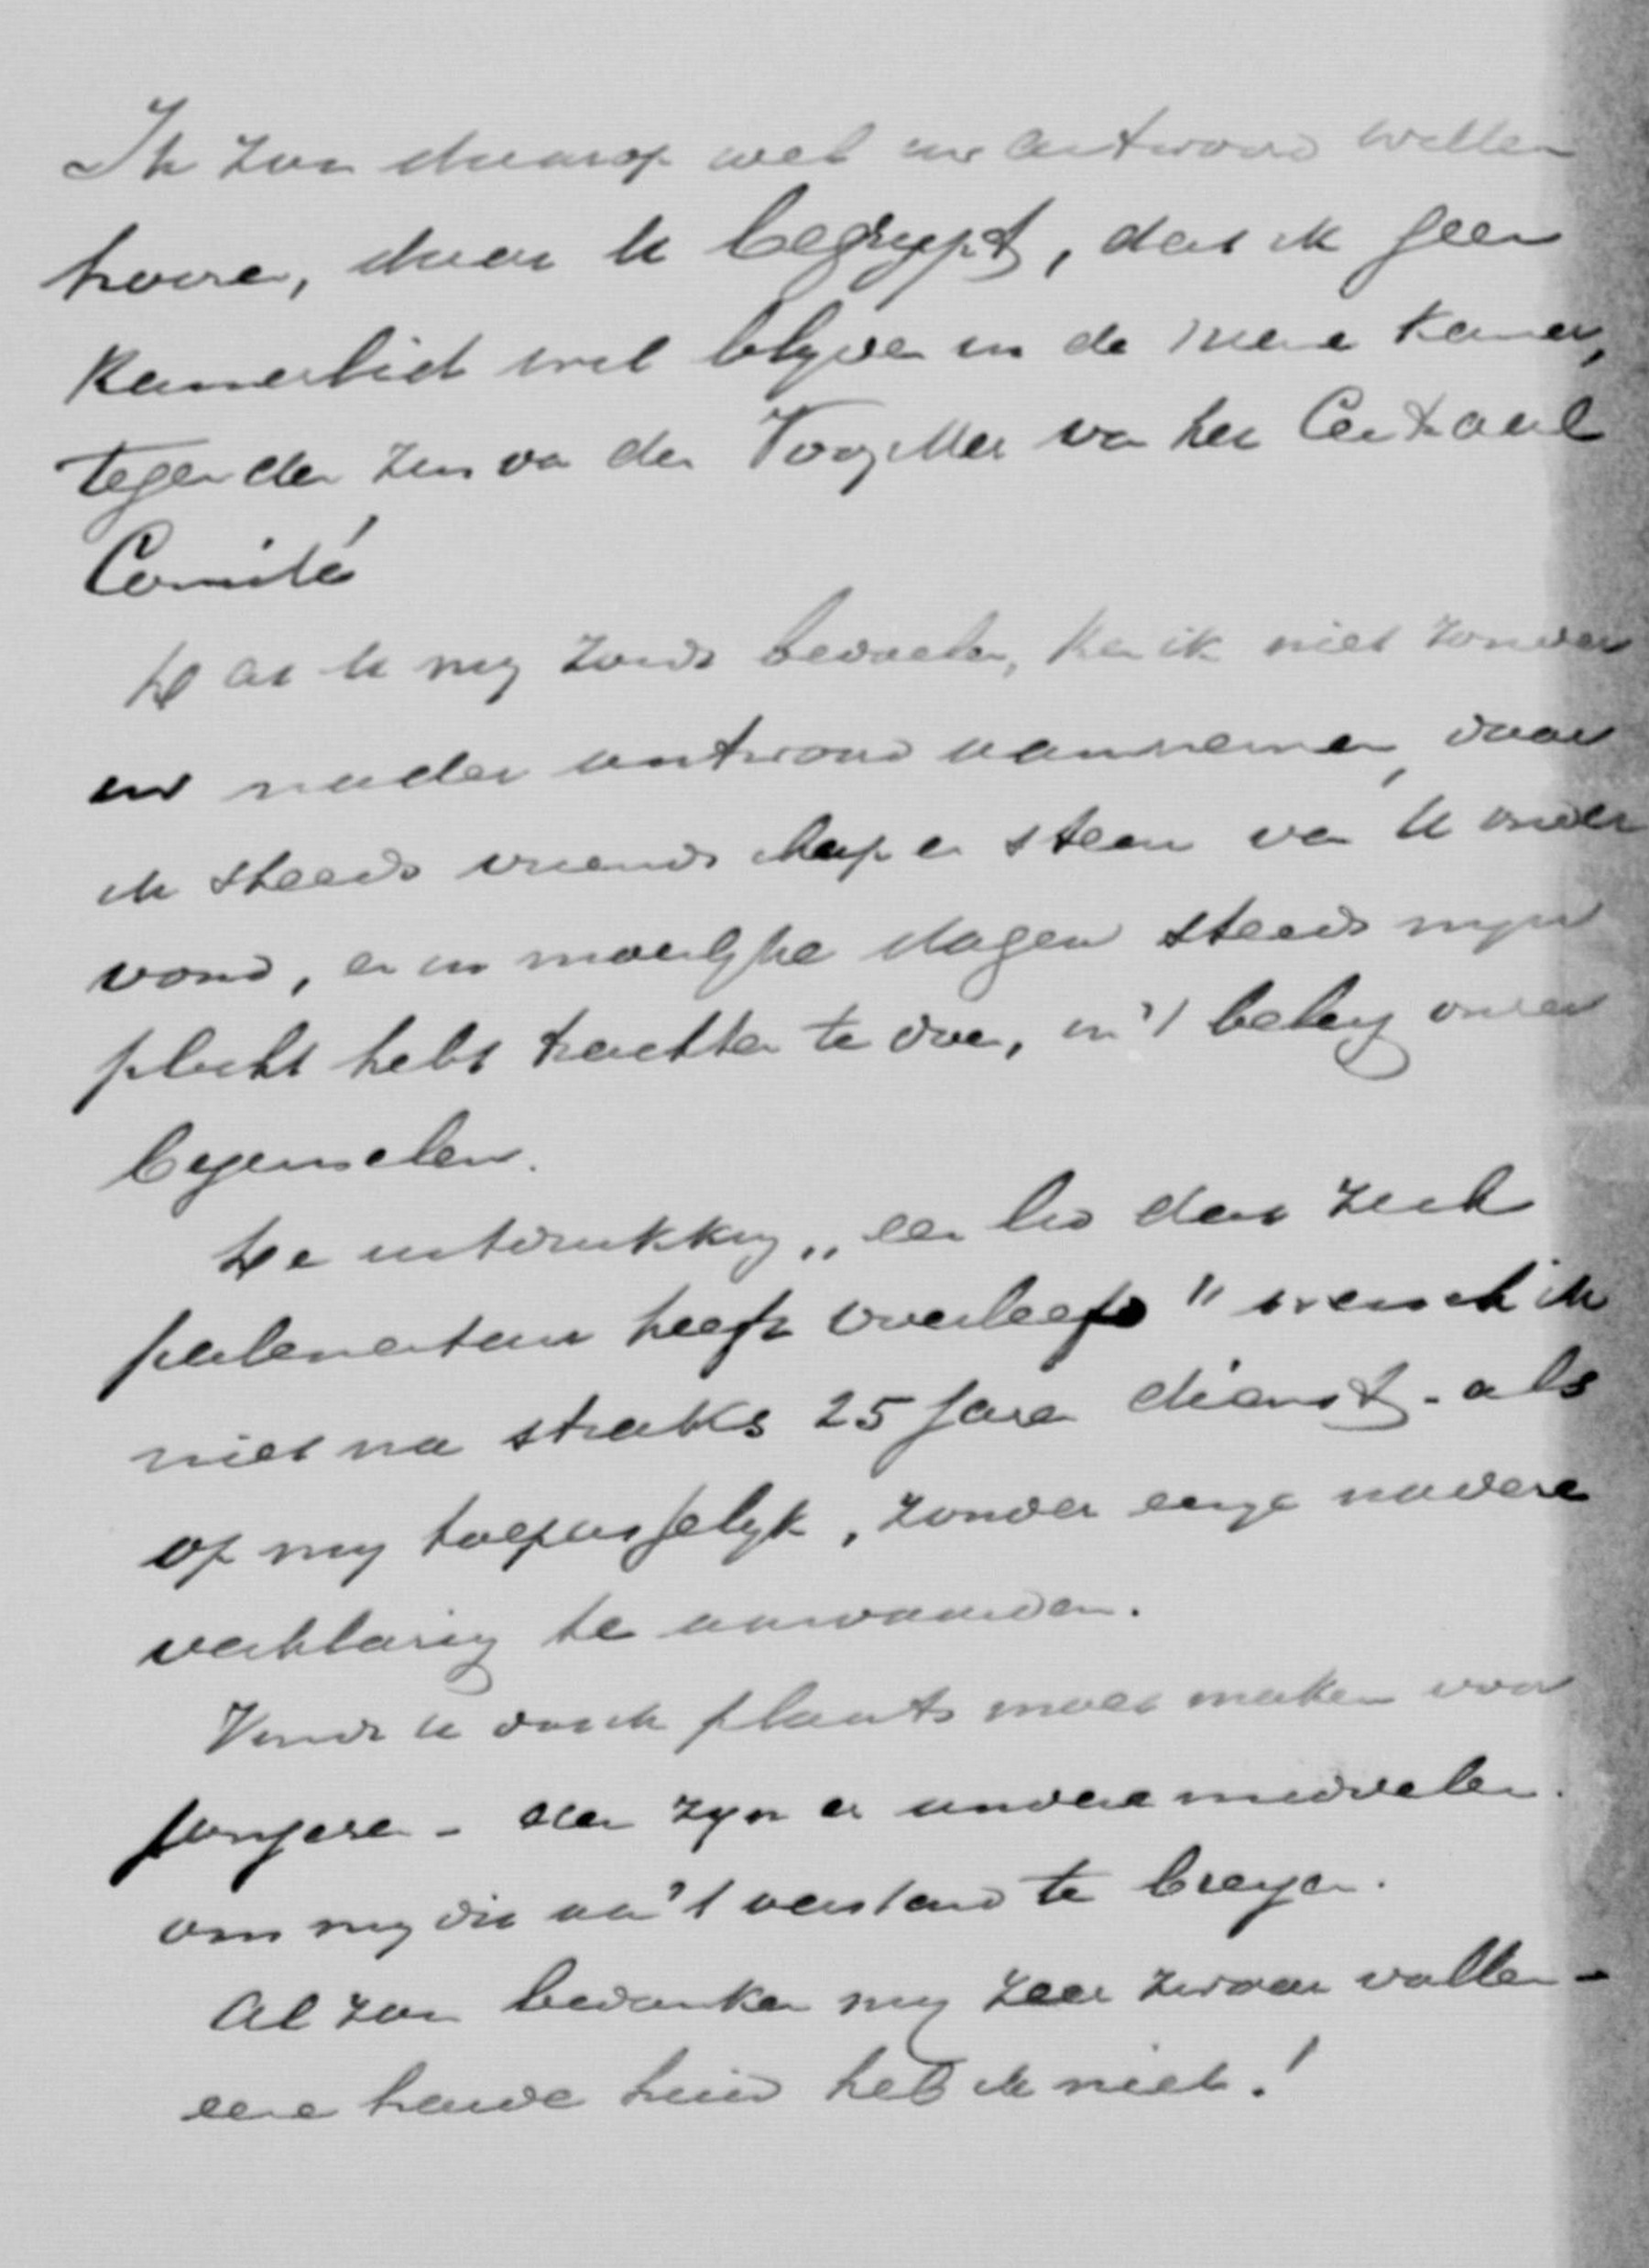 Ik zou daarop wel uw antwoord willen
hooren, daar U begrypt, dat ik geen
Kamerlid wil blyven in de nieuwe Kamer,
tegen den zin van den Voorzitter van het Centraal
Comité
Dat U my zoudt bedoelen, kan ik niet zonder
uw nader antwoord aannemen, daar
ik steeds vriendschap en steun van U onder
vond, en in moeilyke dagen steeds myn
plicht hebt trachten te doen, in 't belang onzer
beginselen.
De uitdrukking „een lid dat zich
parlementair heeft overleefd" wensch ik
niet na straks 25 jaren dienst - als
op my toepasselyk, zonder eenige nadere
verklaring te aanvaarden.
Vindt U dat ik plaats moet maken voor
jongeren - dan zyn er andere middelen
om my dit aan 't verstand te brengen.
Al zou bedanken my zeer zwaar vallen -
eene harde huid heb ik niet!